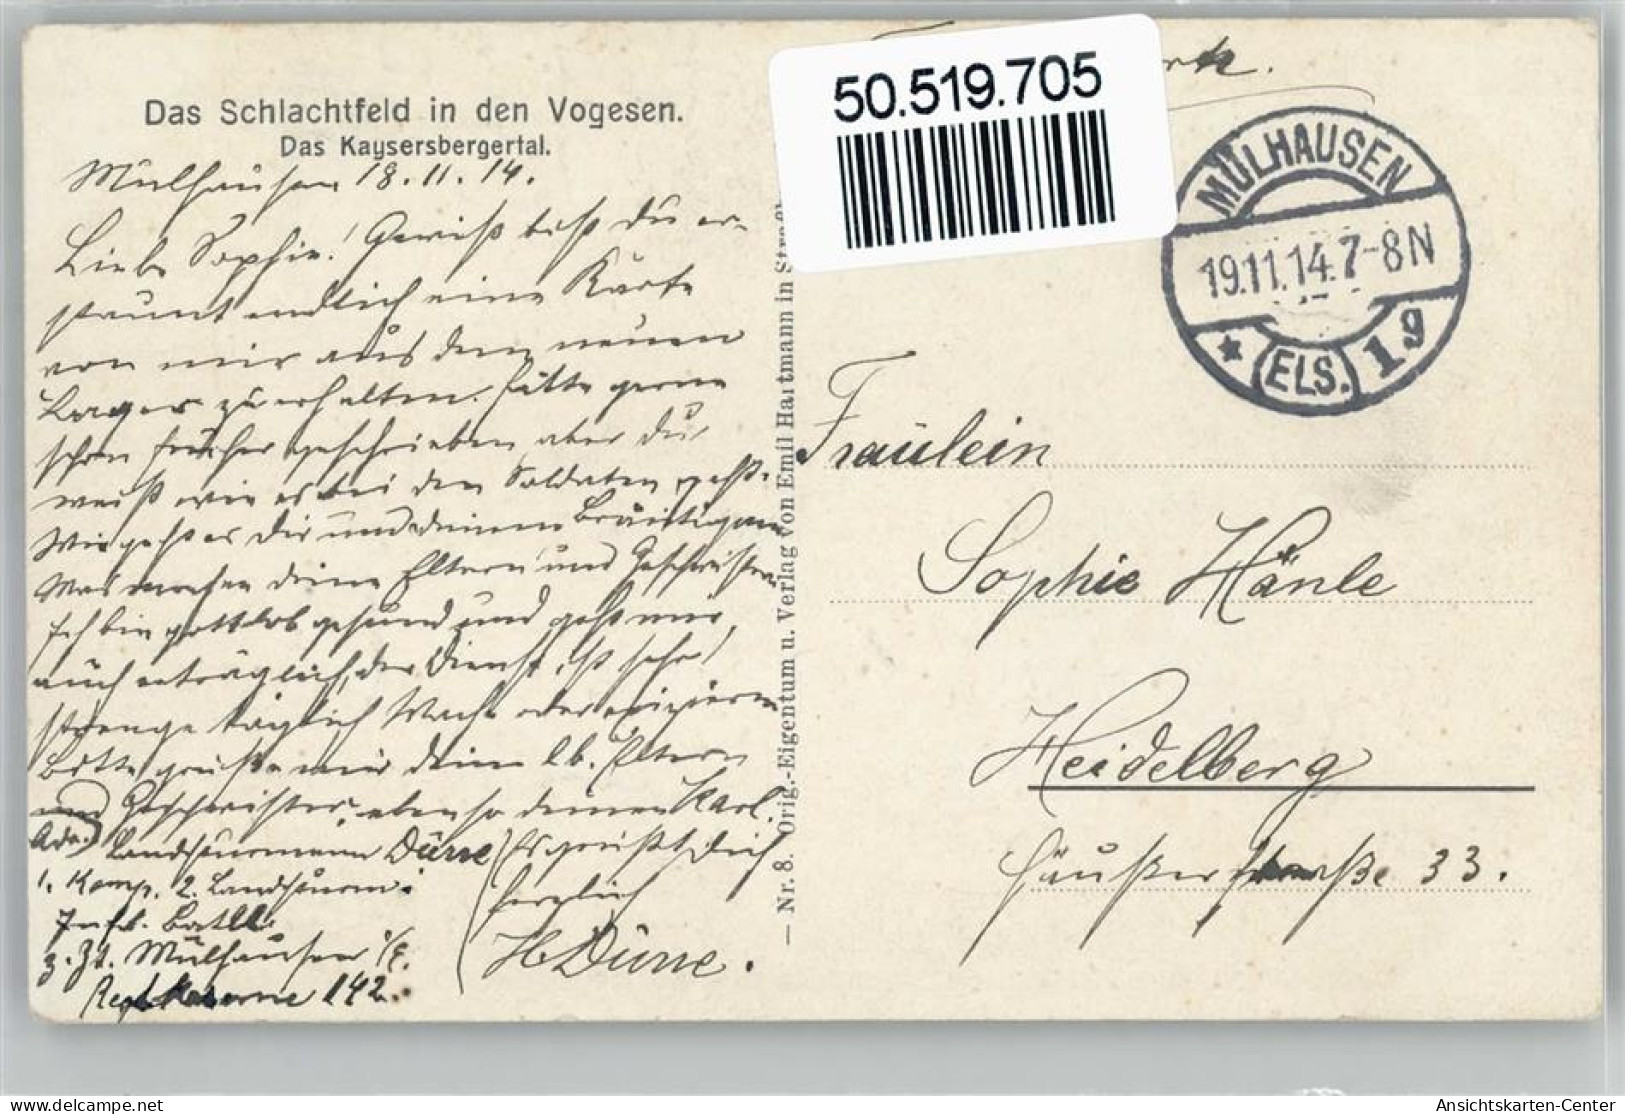 50.519.705
Das Schlachtfeld in den Vogesen.
Das Kaysersbergertal.
MÜLHAUSEN
19.11.14.7-8N
* (ELS.) 19
Mülhausen 18.11.14.
Liebe Sophie! Gewiß bist du er-
staunt endlich eine Karte
von mir aus dem neuen
Lager zu erhalten. Hätte gerne
schon früher geschrieben aber du
weißt wie es bei den Soldaten geht.
Wie geht es dir und deinem Bräutigam
Was machen deine Eltern und Geschwister
Ich bin gottlob gesund und geht mir
auch erträglich, der Dienst ist sehr
strenge täglich Wache oder exizieren
Bitte grüße mir deine lb. Eltern
und Geschwister, ebenso deinen Karl.
Es grüßt dich
herzlich
H Dürre.
Adr. Landsturmmann Dürre
1. Komp. 2. Landsturm
Inft. Batll.
z. Zt. Mülhausen i/E.
Kaserne 142.
— Nr. 8. Orig.-Eigentum u. Verlag von Emil Hartmann in
Fräulein
Sophie Hänle
Heidelberg
Häußerstraße 33.
Ansichtskarten-Center
delcampe.net